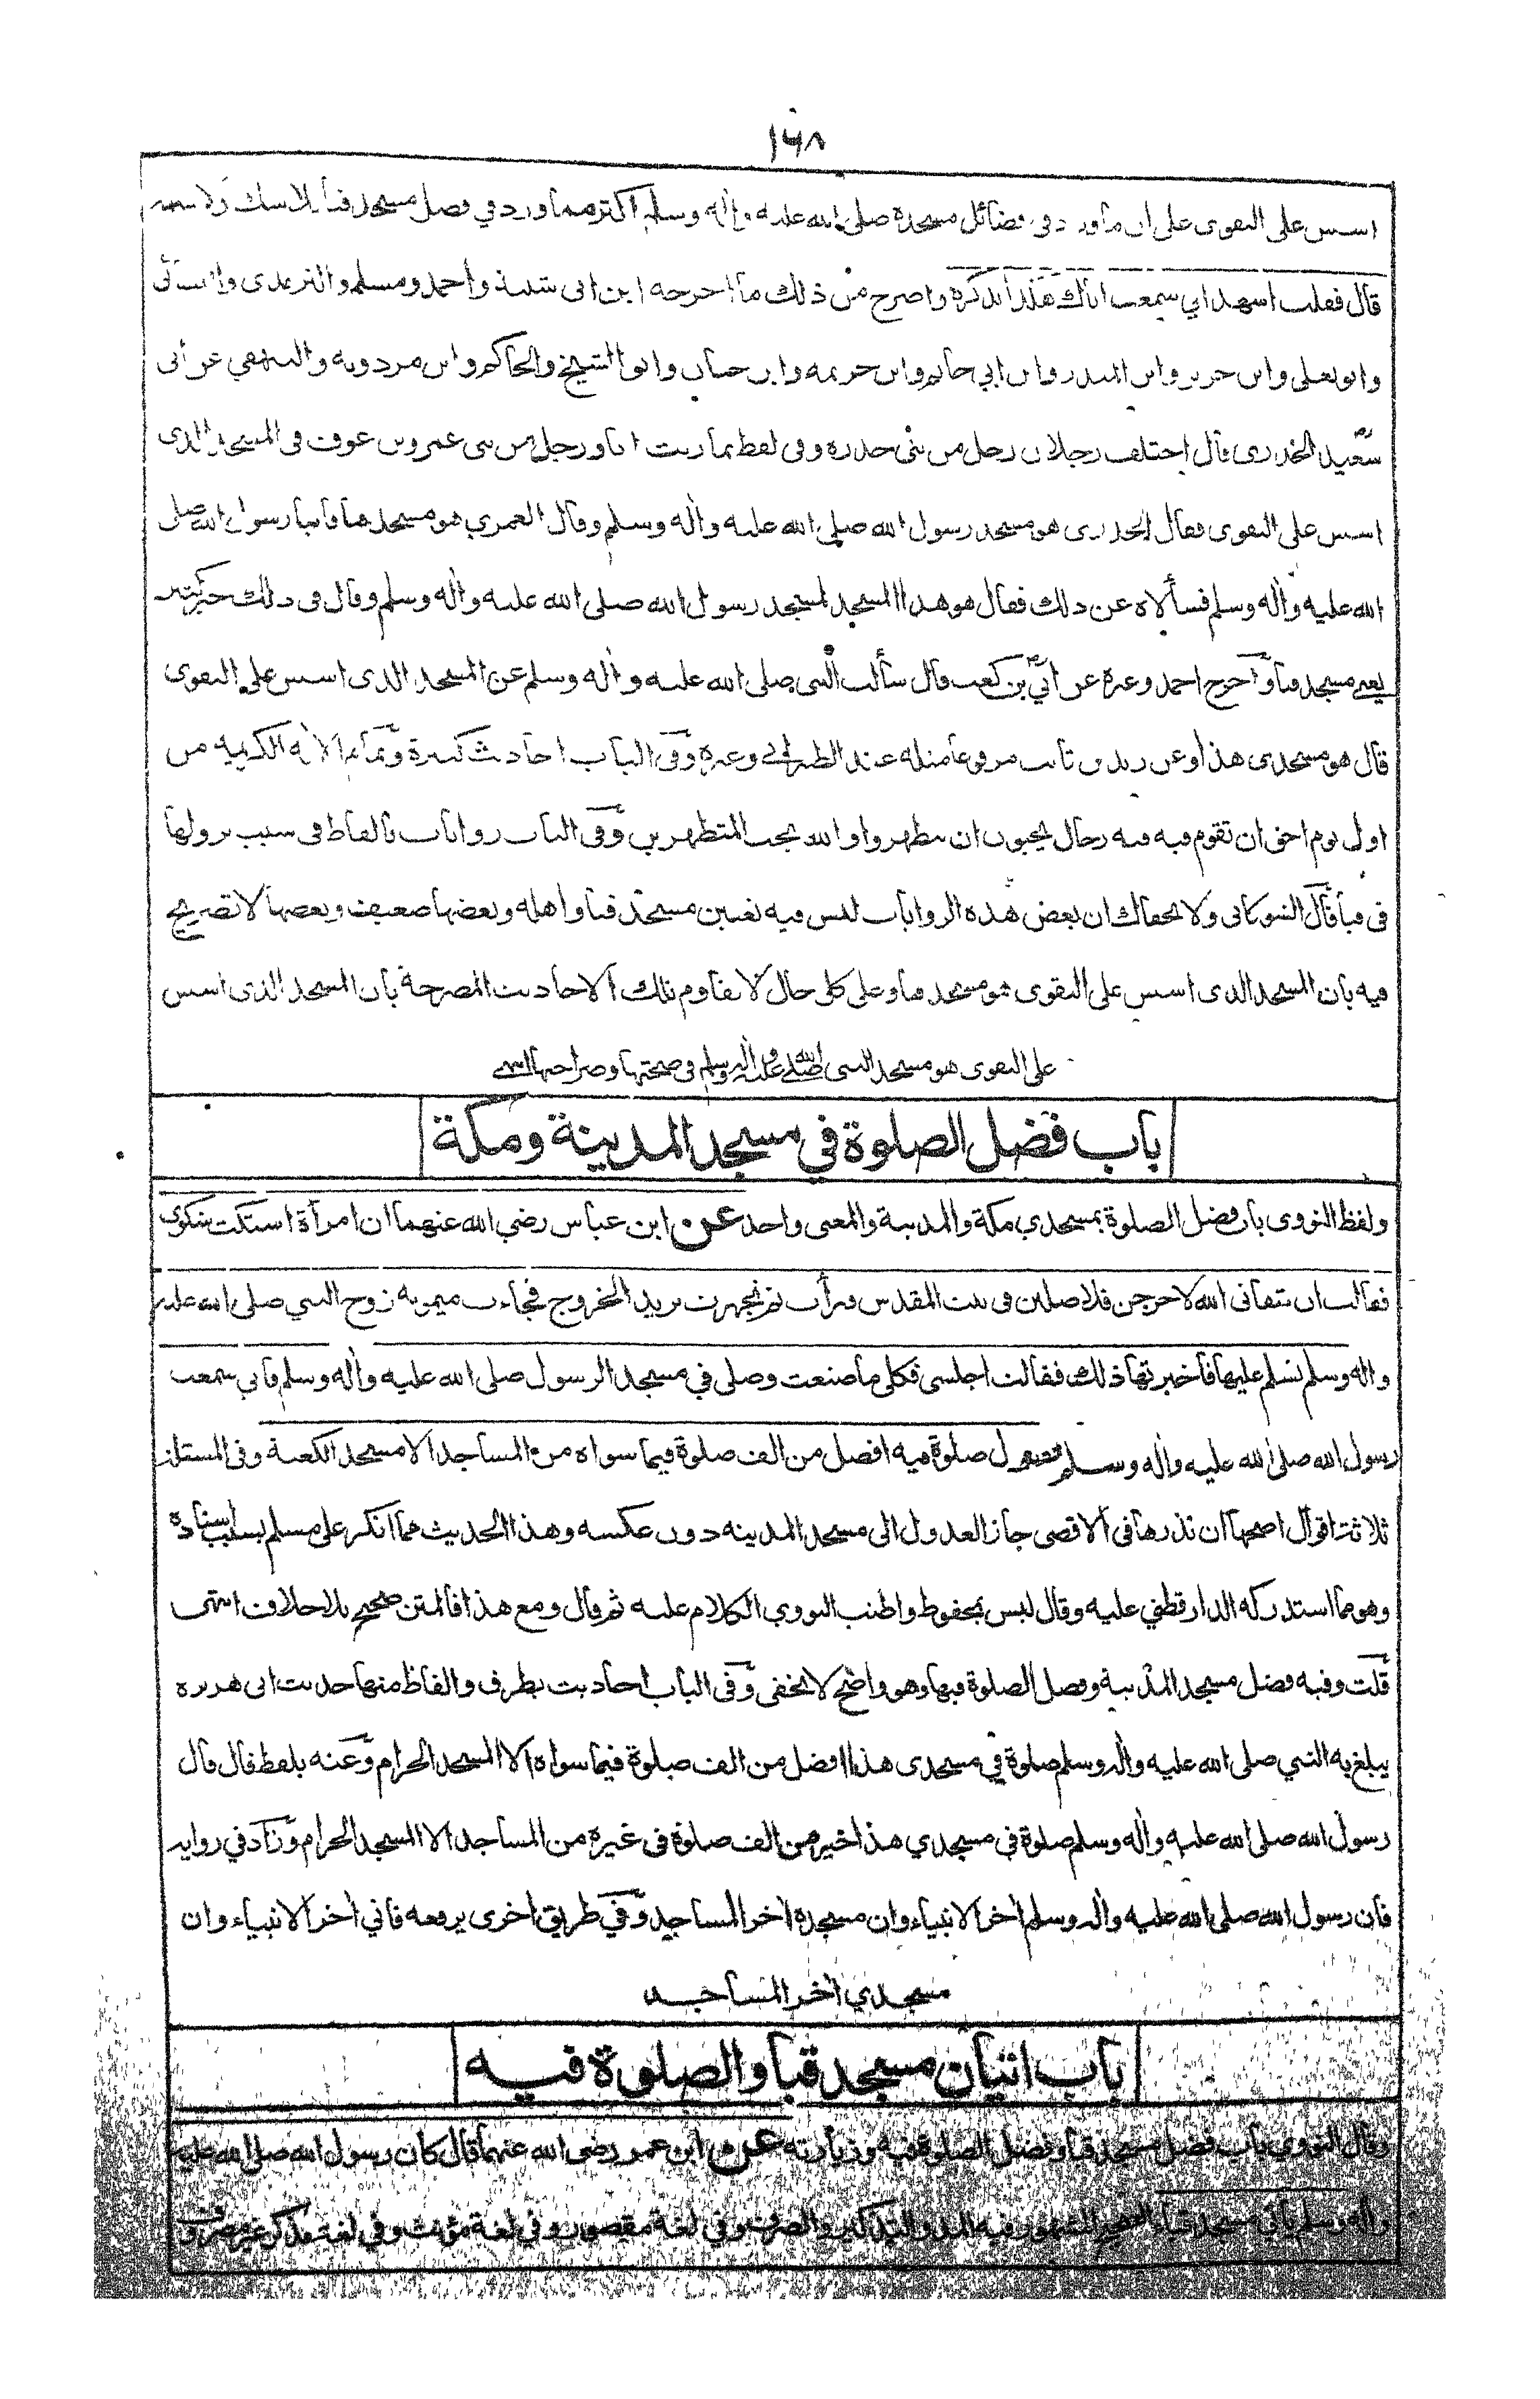 ١٦٨
اسس على التقوى على ان ما ورد في فضائل مسجده صلى الله عليه واٰله وسلم اكثر مما ورد في فضل مسجد قبا بلا شك ولا شبهة
قال فقلت اشهد اني سمعت اباك هكذا يذكره واصرح من ذلك ما اخرجه ابن ابى شيبة واحمد ومسلم والترمذى والنسائى
وابو يعلى وابن جرير وابن المنذر وابن ابي حاتم وابن خزيمه وابن حبان وابو الشيخ والحاكم وابن مردويه والبيهقي عن أبى
سعيد الخدرى قال اختلف رجلان رجل من بنى خدره وفى لفظ تماريت انا ورجل من بنى عمرو بن عوف فى المسجد الذى
اسس على التقوى فقال الخدرى هو مسجد رسول الله صلى الله عليه واٰله وسلم وقال العمري هو مسجد قبا فاتيا رسول الله صلى
الله عليه واٰله وسلم فسألاه عن ذلك فقال هو هذا المسجد لمسجد رسول الله صلى الله عليه واٰله وسلم وقال فى ذلك خير كثير
يعنے مسجد قبا واخرج احمد وغيره عن أبيّ بن كعب قال سألت النبى صلى الله عليه واٰله وسلم عن المسجد الذى اسس على التقوى
قال هو مسجدى هذا وعن زيد بن ثابت مرفوعا مثله عند الطبرانے وغيره وفى الباب احاديث كثيرة وتمام الاٰيه الكريمه من
اول يوم احق ان تقوم فيه فيه رجال يحبون ان يتطهروا والله يحب المتطهرين وفى الباب روايات بالفاظ فى سبب نزولها
فى قبا قال الشوكانى ولا يخفاك ان بعض هذه الروايات ليس فيه تعيين مسجد قبا واهله وبعضها ضعيف وبعضها لا تصريح
فيه بان المسجد الذى اسس على التقوى هو مسجد قبا وعلى كل حال لا تقاوم تلك الاحاديث المصرحة بان المسجد الذى اسس
على التقوى هو مسجد النبى صلى الله عليه واٰله وسلم فى صحتها وصراحتها انتهى
باب فضل الصلوة في مسجد المدينة ومكة
ولفظ النووى باب فضل الصلوة بمسجدي مكة والمدينة والمعنى واحد عن ابن عباس رضي الله عنهما ان امرأة اشتكت شكوى
فقالت ان شفانى الله لاخرجن فلاصلين فى بيت المقدس فبرأت ثم تجهزت تريد الخروج فجاءت ميمونه زوج النبي صلى الله عليه
واله وسلم تسلم عليها فاخبرتها ذلك فقالت اجلسى فكلى ما صنعت وصلى في مسجد الرسول صلى الله عليه واٰله وسلم فاني سمعت
رسول الله صلى الله عليه واٰله وسلم يقول صلوة فيه افضل من الف صلوة فيما سواه من المساجد الا مسجد الكعبة وفى المسئلة
ثلاثة اقوال اصحها ان نذرها فى الاقصى جاز العدول الى مسجد المدينه دون عكسه وهذا الحديث مما انكر على مسلم بسبب اسناده
وهو مما استدركه الدارقطني عليه وقال ليس بمحفوظ واطنب النووى الكلام عليه ثم قال ومع هذا فالمتن صحيح بلا خلاف انتهى
قلت وفيه فضل مسجد المدينة وفضل الصلوة فيها وهو واضح لا يخفى وفى الباب احاديث بطرق والفاظ منها حديث ابى هريره
يبلغ به النبي صلى الله عليه واٰله وسلم صلوة في مسجدى هذا افضل من الف صلوة فيما سواه الا المسجد الحرام وعنه بلفظ قال قال
رسول الله صلى الله عليه واٰله وسلم صلوة في مسجدي هذا خير من الف صلوة فى غيره من المساجد الا المسجد الحرام وزاد في رواية
فان رسول الله صلى الله عليه واٰله وسلم اٰخر الانبياء وان مسجده اٰخر المساجد وفي طريق اخرى يرفعه فاني اٰخر الانبياء وان
مسجدي اٰخر المساجد
باب اتيان مسجد قبا والصلوة فيه
وقال النووي باب فضل مسجد قبا وفضل الصلوة فيه وزيارته عن ابن عمر رضى الله عنهما قال كان رسول الله صلى الله عليه
واٰله وسلم يأتي مسجد قباء الصحيح المشهور فيه المد والتذكير والصرف وفي لغة مقصور وفي لغة مؤنث وفي لغة مذكر غير مصروف